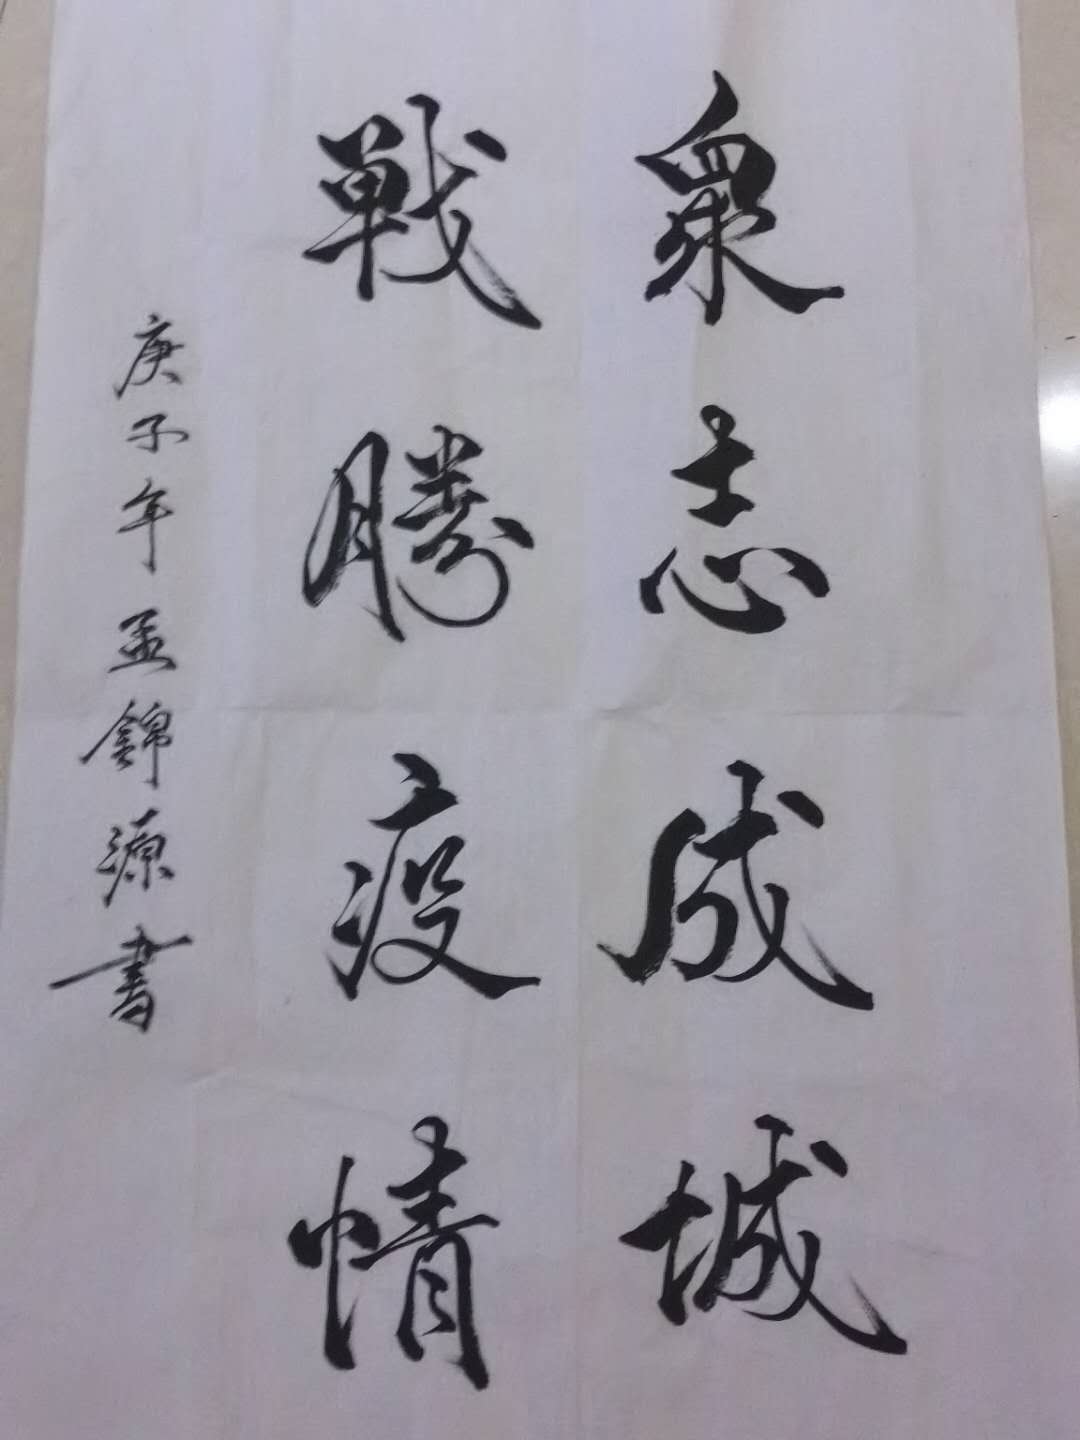 眾志成城
戰勝疫情
庚子年孟錦源書